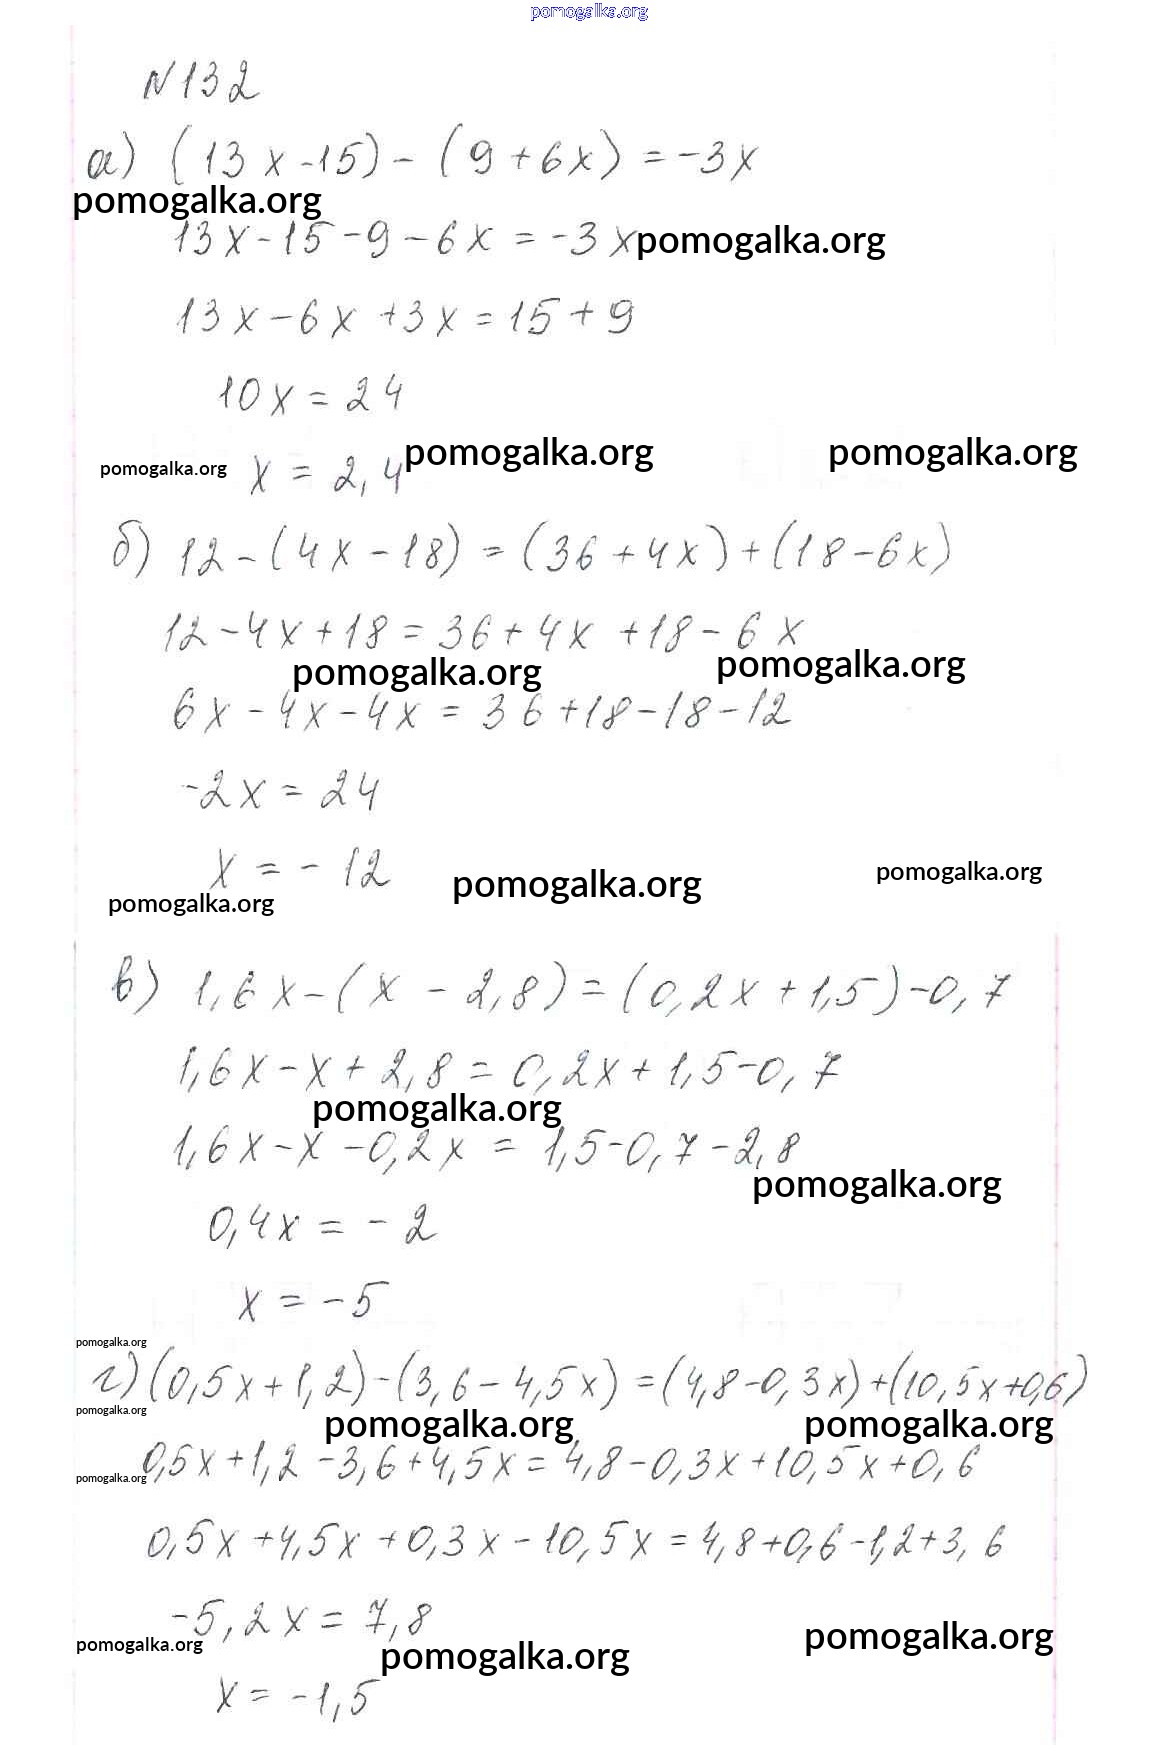 pomogalka.org
N132
а) (13x-15)-(9+6x)=-3x
pomogalka.org
13x-15-9-6x=-3x
pomogalka.org
13x-6x+3x=15+9
10x=24
pomogalka.org
pomogalka.org
pomogalka.org
x=2,4
б) 12-(4x-18)=(36+4x)+(18-6x)
12-4x+18=36+4x+18-6x
pomogalka.org
pomogalka.org
6x-4x-4x=36+18-18-12
-2x=24
x=-12
pomogalka.org
pomogalka.org
pomogalka.org
в) 1,6x-(x-2,8)=(0,2x+1,5)-0,7
1,6x-x+2,8=0,2x+1,5-0,7
pomogalka.org
1,6x-x-0,2x=1,5-0,7-2,8
pomogalka.org
0,4x=-2
x=-5
pomogalka.org
г) (0,5x+1,2)-(3,6-4,5x)=(4,8-0,3x)+(10,5x+0,6)
pomogalka.org
pomogalka.org
pomogalka.org
0,5x+1,2-3,6+4,5x=4,8-0,3x+10,5x+0,6
pomogalka.org
0,5x+4,5x+0,3x-10,5x=4,8+0,6-1,2+3,6
-5,2x=7,8
pomogalka.org
pomogalka.org
pomogalka.org
x=-1,5